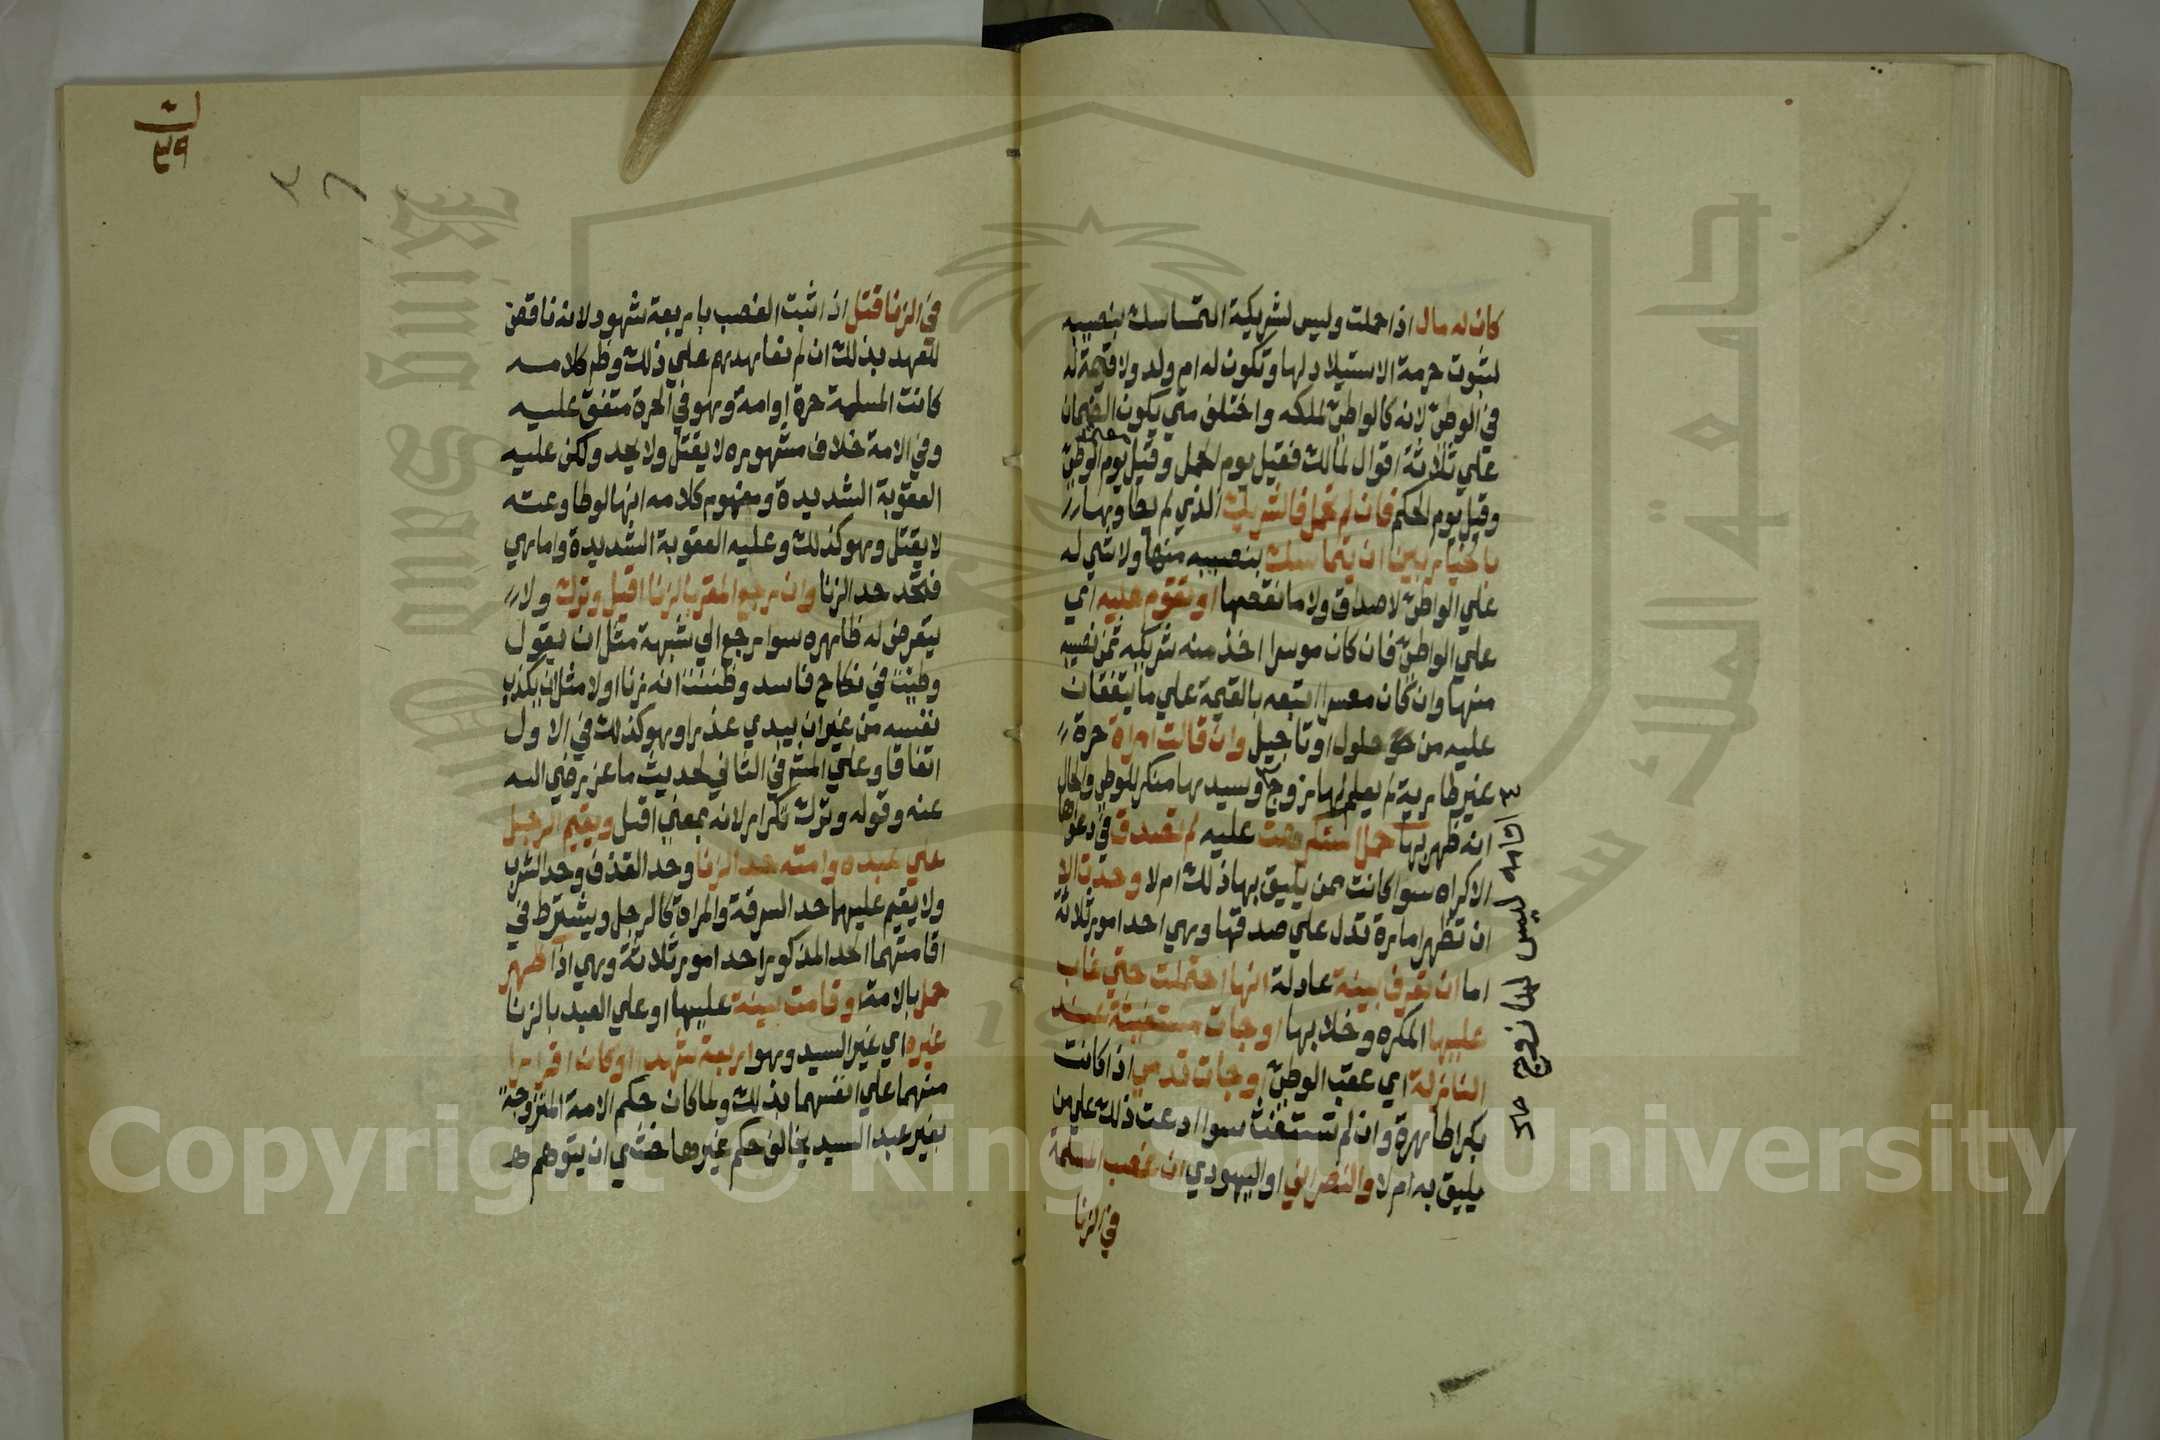 كان له مال اذا حملت وليس لشريكه التماسك بنصيبه
لثبوت حرمة الاستيلاد لها وتكون له ام ولد ولا قيمة له
في الوطئ لانه كالواطئ لملكه واختلف متي يكون الضمان
علي ثلاثة اقوال لمالك فقيل يوم الحمل وقيل يوم الوطئ
وقيل يوم الحكم فان لم تحمل فالشريك الذي لم يطا وبها
بالخيار بين ان يتماسك بنصيبه منها ولا شي له
علي الواطئ لا صداق ولا ما نقصها او تقوم عليه اي
علي الواطئ فان كان موسرا اخذ منه شريكه ثمن نصيبه
منها وان كان معسرا اتبعه بالقيمة علي ما يتفقان
عليه من حلول او تاجيل وان قالت امراة حرة
غير طارية لم يعلم لها زوج وسيدها منكر للوطئ والحال
انه ظهر بها حمل استكرهت عليه لم تصدق في دعواها
الاكراه سوا كانت ممن يليق بها ذلك ام لا وحدت الا
ان تظهر امارة تدل علي صدقها وهي احد امور ثلاثة
اما ان تعرف بينة عادلة انها احتملت حتي غاب
عليها المكره وخلا بها او جات مستغيثة عند
النازلة اي عقب الوطئ او جات تدمي اذا كانت
بكرا طاهرة وان لم تستغث سوا ادعت ذلك علي من
يليق به ام لا والنصراني او اليهودي ان غصب المسلمة
في الزنا
اقامه ليس لها زوج حال
ن
٣٩
٣٦
في الزنا قتل اذا ثبت الغصب باربعة شهود لانه ناقض
للعهد بذلك ان لم نعاهدهم علي ذلك وظم كلامه
كانت المسلمة حرة او امة وهو في الحرة متفق عليه
وفي الامة خلاف مشهوره لا يقتل ولا يحد ولكن عليه
العقوبة الشديدة ومفهوم كلامه انها لو طاوعته
لا يقتل وهو كذلك وعليه العقوبة الشديدة واما هي
فتحد حد الزنا وان رجع المقر بالزنا اقيل وترك ولا
يتعرض له ظاهره سوا رجع الي شبهة مثل ان يقول
وطئت في نكاح فاسد وظننت انه زنا او لا مثل ان يكذب
نفسه من غير ان يبدي عذرا وهو كذلك في الاول
اتفاقا وعلي المشهر في الثاني لحديث ماعز رضي الله
عنه وقوله وترك تكرار لانه بمعني اقيل ويقيم الرجل
علي عبده وامته حد الزنا وحد القذف وحد الشرب
ولا يقيم عليهما حد السرقة والمراة كالرجل ويشترط في
اقامتهما الحد المذكور احد امور ثلاثة وهي اذا ظهر
حمل بالامة او قامت بينة عليها او علي العبد بالزنا
غيره اي غير السيد وهو اربعة شهدا او كان اقرارا
منهما علي انفسهما بذلك ولما كان حكم الامة المتزوجة
بغير عبد السيد يخالف حكم غيرها خشي ان يتوهم
جامعة الملك سعود
King Saud University
1957
Copyright © King Saud University